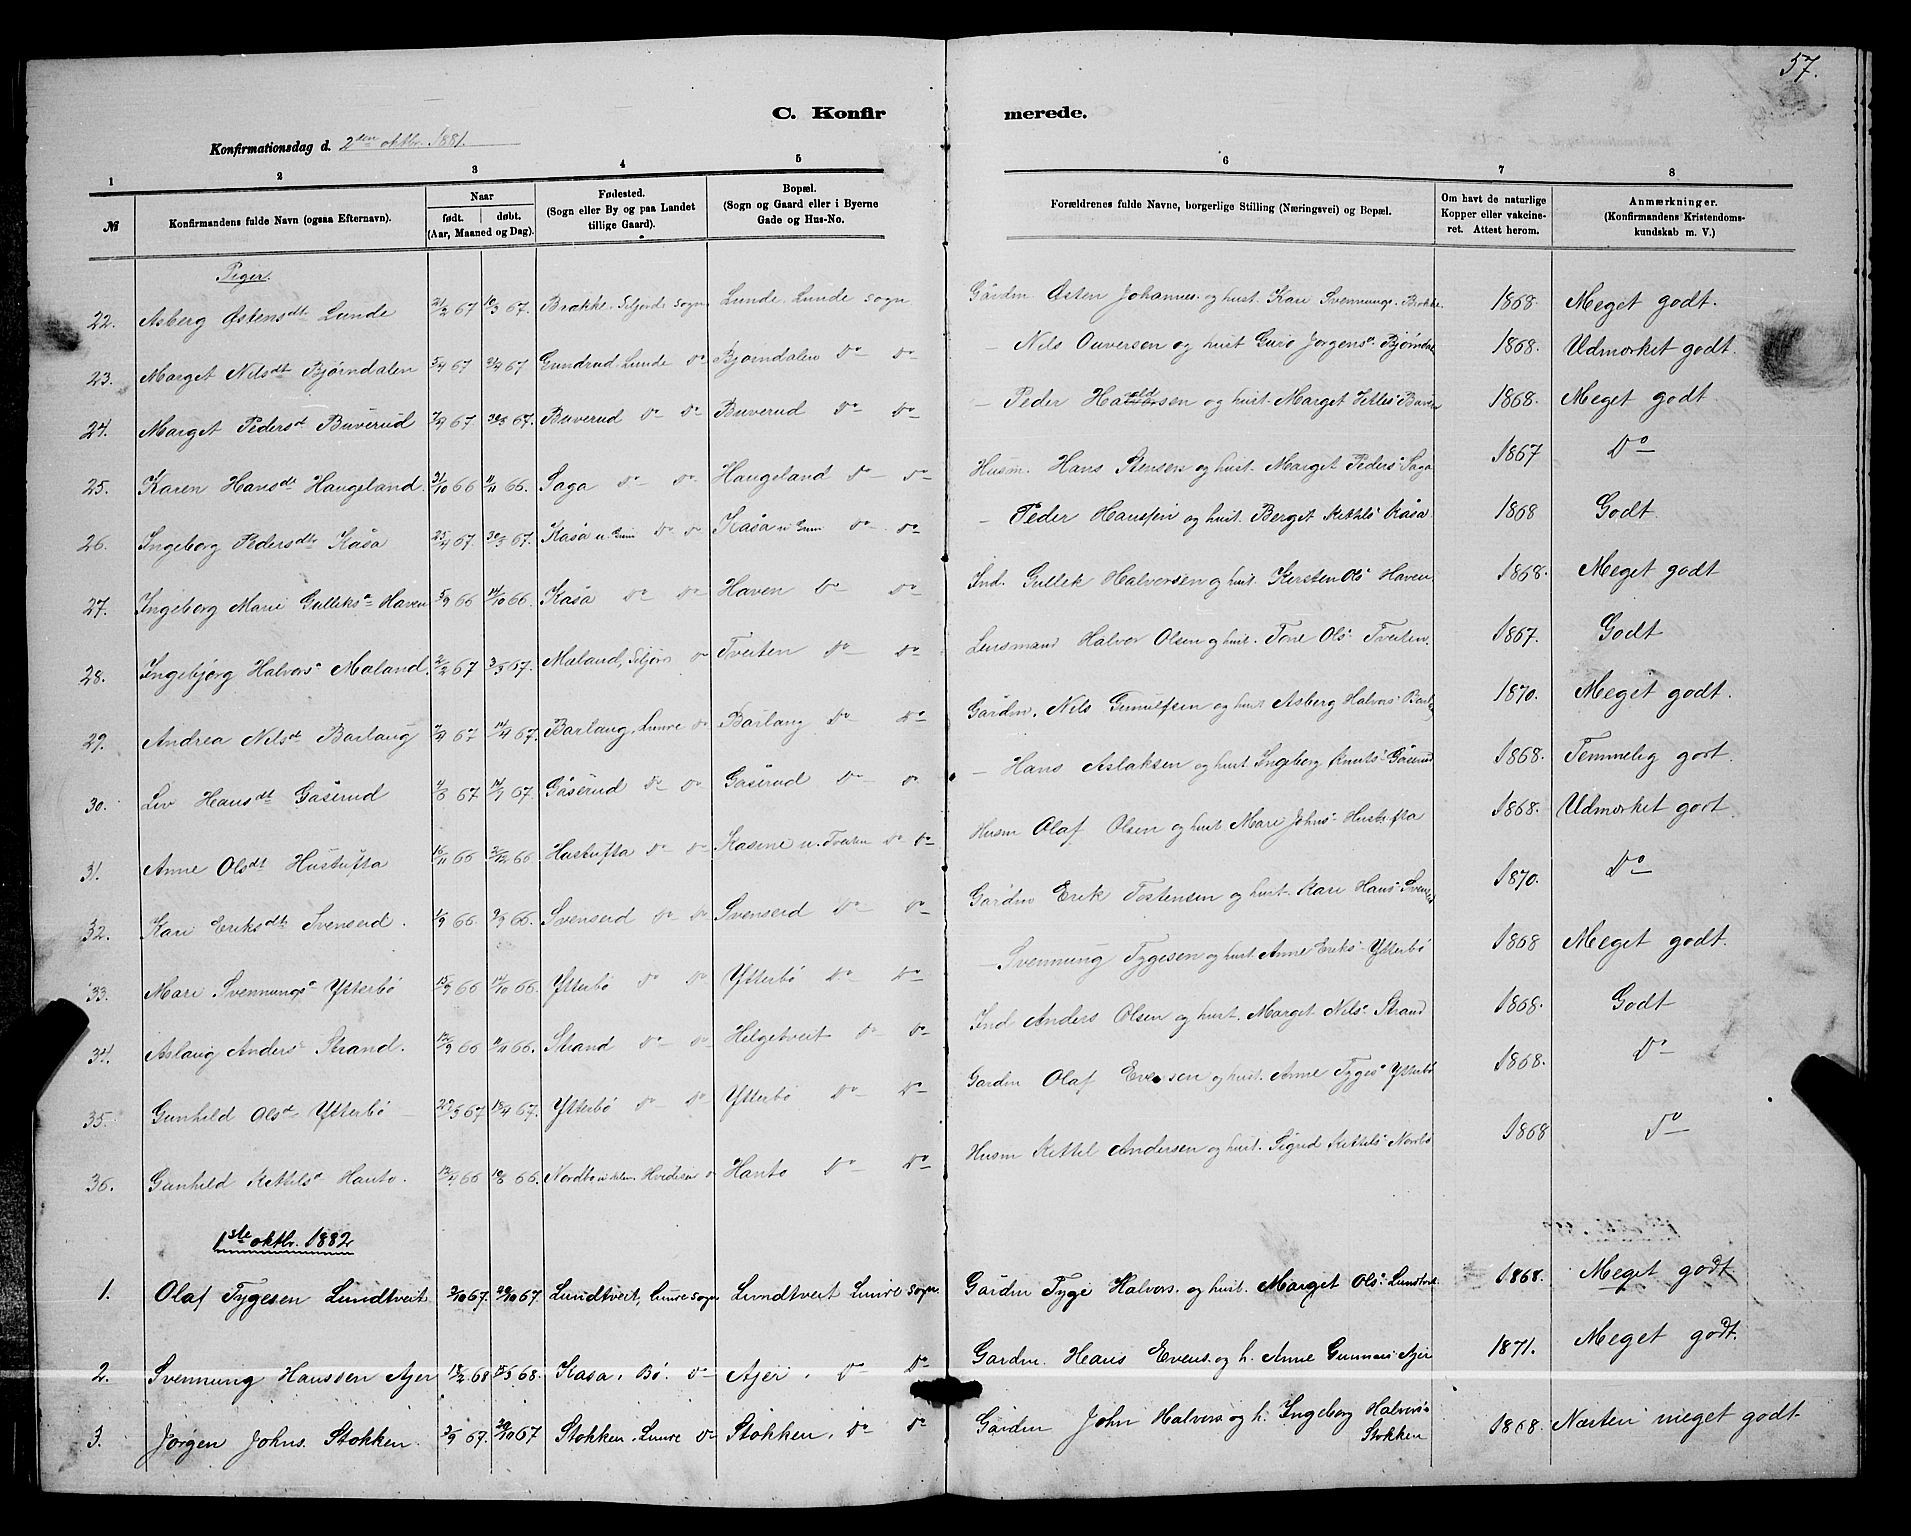 57.
C. Konfirmerede.
Konfirmationsdag d. 2den oktbr. 1881.
1 2 3 4 5 6 7 8
№ Konfirmandens fulde Navn (ogsaa Efternavn). Naar født. døbt. (Aar, Maaned og Dag). Fødested. (Sogn eller By og paa Landet tillige Gaard). Bopæl. (Sogn og Gaard eller i Byerne Gade og Hus-No. Forældrenes fulde Navne, borgerlige Stilling (Næringsvei) og Bopæl. Om havt de naturlige Kopper eller vakcineret. Attest herom. Anmærkninger. (Konfirmandens Kristendomskundskab m. V.)
Piger.
22. Asberg Østensdt Lunde 67 67. Brække Siljords sogn Lunde, Lunde sogn Gårdm Østen Johannes. og hust. Kari Svennungs. 1868. Meget godt.
23. Marget Nilsdt Bjørndalen 5/4 67 67 Gundrud Lunde Do Bjørndalen Do Do — Nils Ouversen og hust Guro Jørgens. 1868. Udmærket godt.
24. Marget Pedersdt Buverud 67 67. Buverud Do Do Buverud Do Do — Peder og hust. Marget 1868. Meget godt
25. Karen Hansdt Haugeland. 31/10 66 11/11 66. Saga Do Do Haugeland Do Do Husm. Hans og hust. Marget Peders. Saga 1867 Do
26. Ingeborg Pedersdtr Kåsa 67. 67. Kåsa Do Do Kåsa Do Do — Peder Hansen og hust. Berget Kåsa 1868 Godt.
27. Ingeborg Marie Gulleks Haven 5/9 66 14/10 66. Kåsa Do Do Haven Do Do Ind. Gullek Halversen og hust. Kersten Ols Haven 1868. Meget godt
28. Ingebjørg Halvors Moland. 2/2 67 67. Moland, Siljors Do Tveiten Do Do Lensmand Halvor Olsen og hust. Tone Ols Tveiten. 1867. Godt
29. Andrea Nilsdt Barlaug 67 14/4 67. Barlaug, Lunde Do Barlaug Do Do Gårdm. Nils Gunulfsen og hust Asberg Halvors 1870. Meget godt.
30. Liv Hansdt Gåserud 67 67. Gåserud Do Do Gåserud Do Do — Hans Aslaksen og hust Ingborg Knuts Gåserud 1868. Temmelig godt.
31. Anne Olsdt Hustufta 16/11 66 66 Hustufta Do Do Kasene u. Tveiten Do Do Husm Olaf Olsen og hust Mari Johns Hustufta 1868. Udmærket godt
32. Kari Eriksdtr Svenserd. 66 66. Svenserd Do Do Svenserd Do Do Gårdm Erik Tostensen og hust. Kari Hans 1870. Do
33. Mari Svennungs Ytterbø 15/9 66 14/10 66. Ytterbø Do Do Ytterbø Do Do — Svennung Tygesen og hust Anne Eriks Ytterbø 1868 Meget godt.
34. Aslaug Anders Strand. 12/9 66 11/11 66. Strand Do Do Helgetveit Do Do Ind Anders Olsen og hust. Marget Nils Strand 1868. Godt
35. Gunhild Olsdt Ytterbø 67 67. Ytterbø Do Do Ytterbø Do Do Gårdm Olaf Eversen og hust. Anne Tyges Ytterbø 1868. Do
36. Gunhild Kettils Hanto. 66 66. Nordbø Hvideseid Do Hanto Do Do Husm Kettil Andersen og hust. Sigrid Kettils Nordbø 1868 Do
1ste oktbr. 1882
1. Olaf Tygesen Lundtveit 67. 67 Lundtveit, Lunde sogn Lundtveit Lunde sogn Gårdm Tyge Halvors. og hust. Marget Ols Lundtveit 1868. Meget godt
2. Svennung Hanssen Ajer 18/2 68 68. Kasa, Bø. Do Ajer, Do Do Gårdm. Hans Evens. og h. Anne Gunnars Ajer 1871. Meget godt.
3. Jørgen Johns. Stokken. 67. 67 Stokken, Lunde Do Stokken, Do Do Gårdm John Halvors og h. Ingeborg Halvors Stokken 1868. Næsten meget godt.